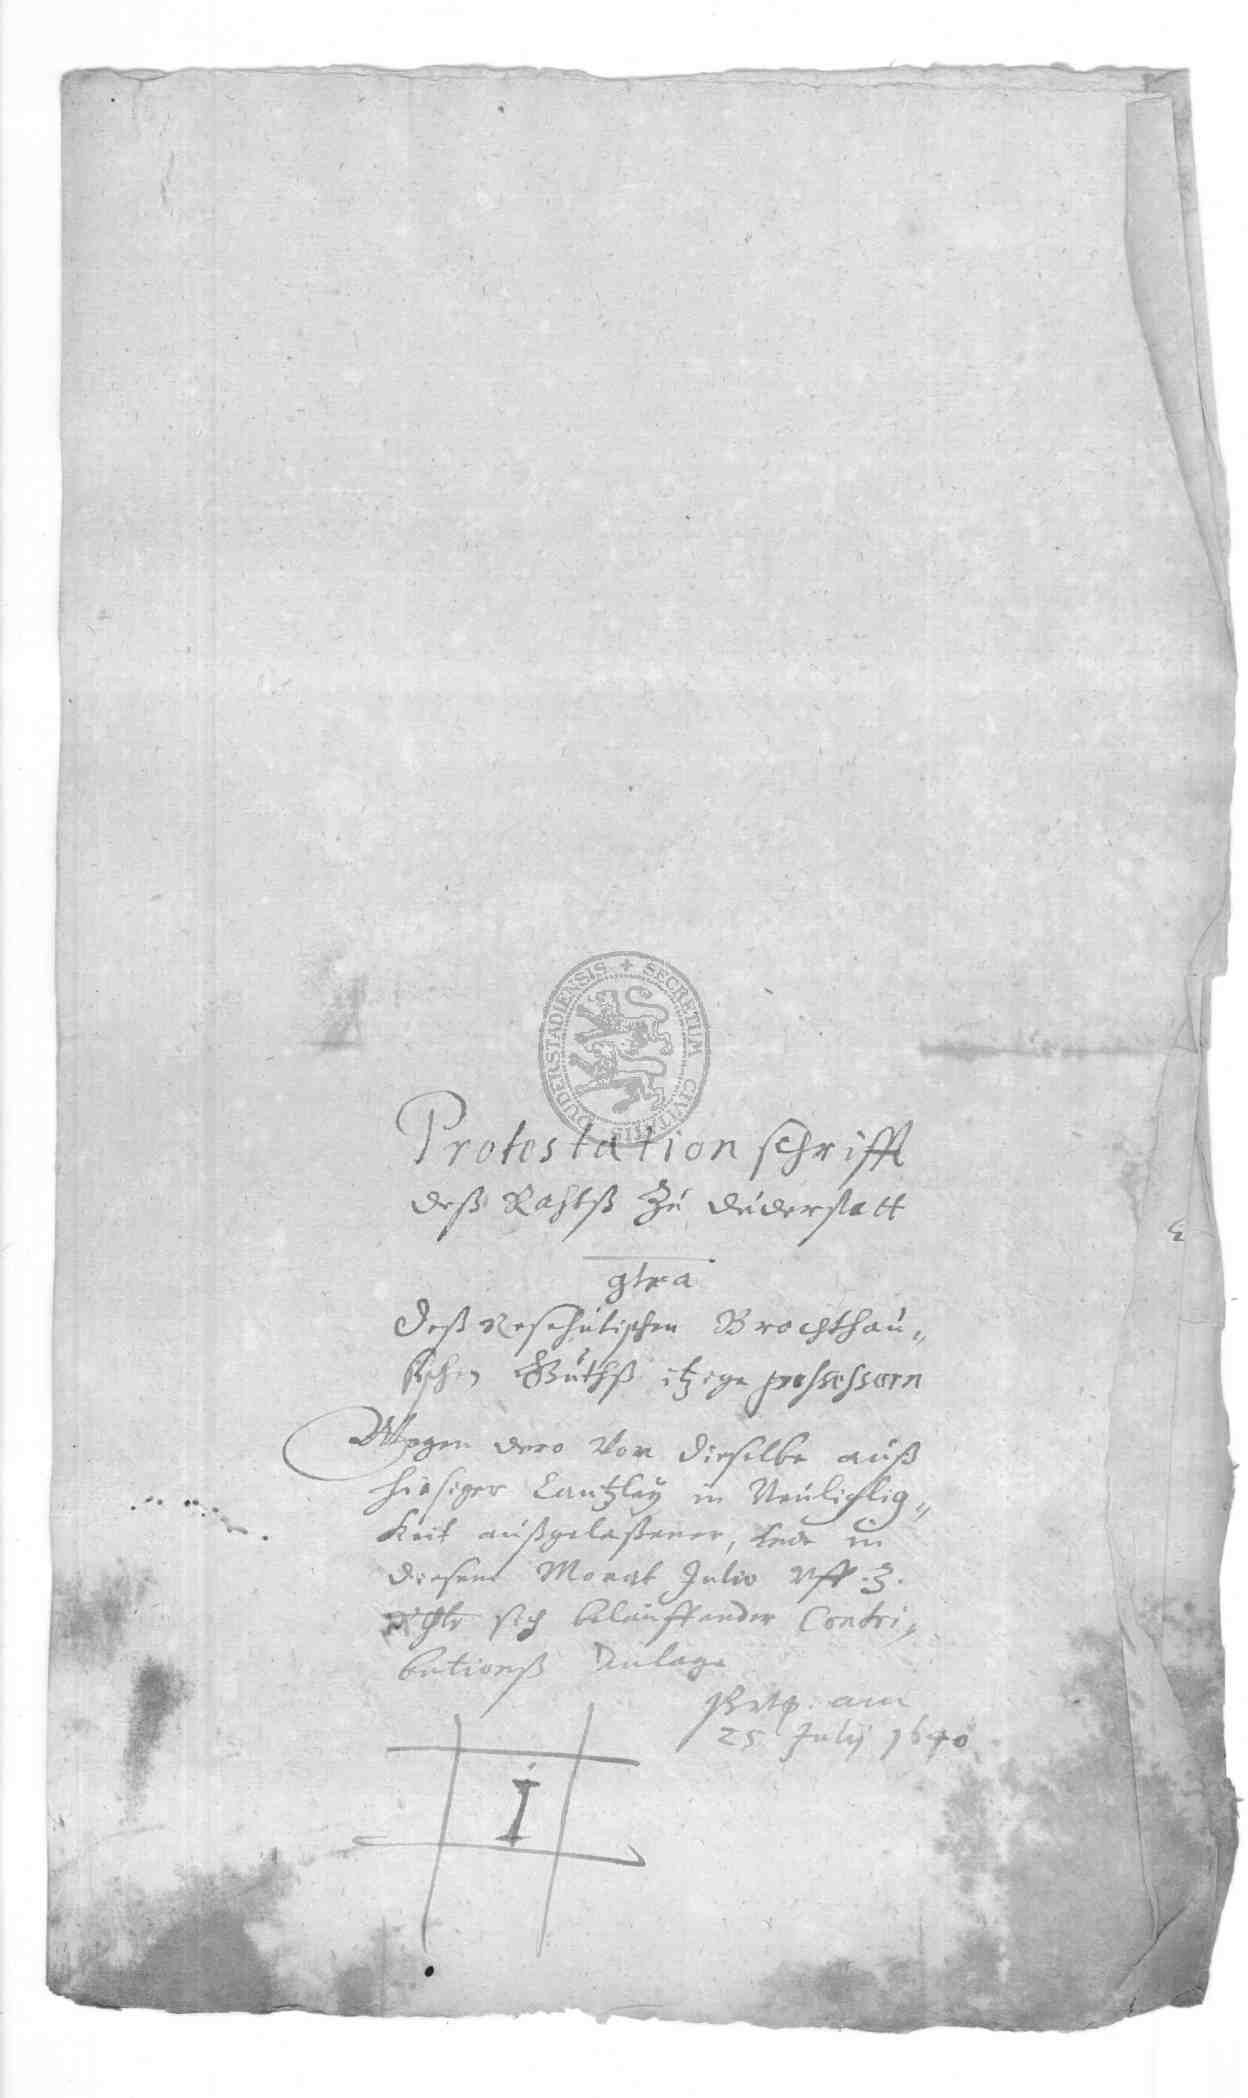 SECRETUM CIVITATIS DUDERSTADIENSIS
Protestation schrifft
deß Rahtß Zu Duderstatt
gtra
deß Neschütischen Brochthau„
sischen Guthß itzige possessorn
Wegen dero von dieselbe auß
hiesiger Cantzley in Neuliglig„
keit außgelaßener, in
diesem Monat Julio uff 3.
sich belauffender Contri„
butionß Anlage
am
25 Julij 1640
I